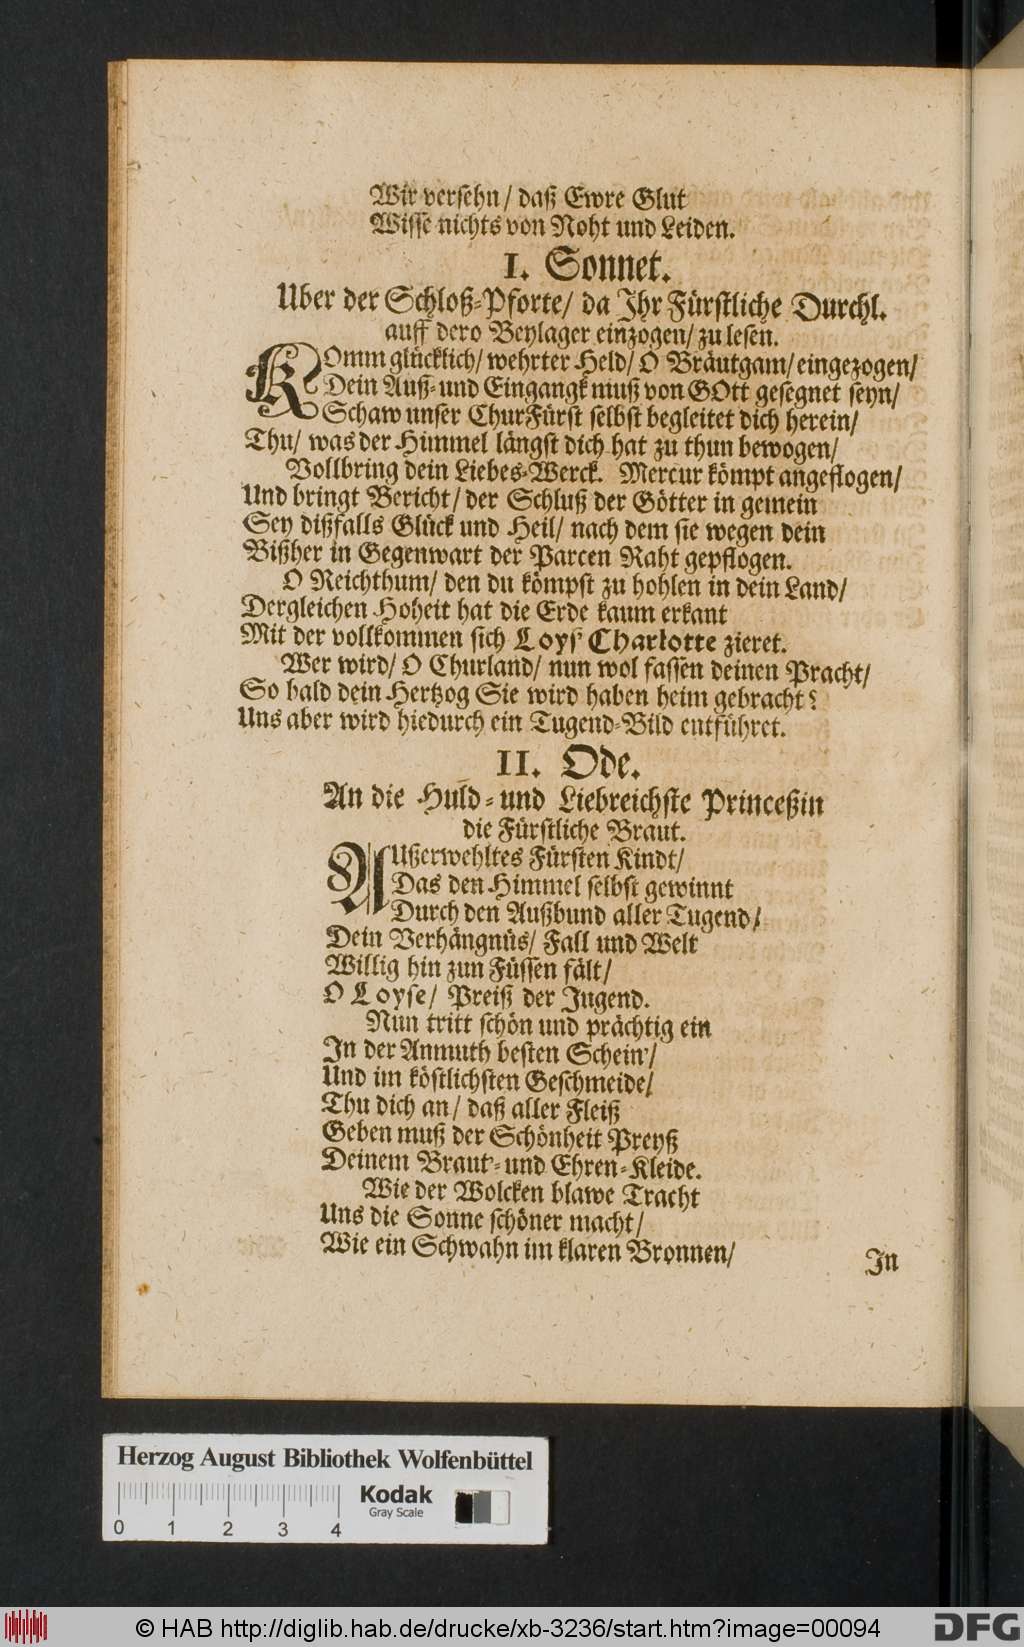 Wir versehn/ daß Ewre Glut
Wisse nichts von Noht und Leiden.
I. Sonnet.
Uber der Schloß-Pforte/ da Ihr Fürstliche Durchl.
auff dero Beylager einzogen/ zu lesen.
KOmm glücklich/ wehrter Held/ O Bräutgam/ eingezogen/
Dein Auß- und Eingangk muß von GOtt gesegnet seyn/
Schaw unser ChurFürst selbst begleitet dich herein/
Thu/ was der Himmel längst dich hat zu thun bewogen/
Vollbring dein Liebes-Werck. Mercur kömpt angeflogen/
Und bringt Bericht/ der Schluß der Götter in gemein
Sey dißfalls Glück und Heil/ nach dem sie wegen dein
Bißher in Gegenwart der Parcen Raht gepflogen.
O Reichthum/ den du kömpst zu hohlen in dein Land/
Dergleichen Hoheit hat die Erde kaum erkant
Mit der vollkommen sich Loys' Charlotte zieret.
Wer wird/ O Churland/ nun wol fassen deinen Pracht/
So bald dein Hertzog Sie wird haben heim gebracht?
Uns aber wird hiedurch ein Tugend-Bild entführet.
II. Ode.
An die Huld- und Liebreichste Princeßin
die Fürstliche Braut.
AUßerwehltes Fürsten Kindt/
Das den Himmel selbst gewinnt
Durch den Außbund aller Tugend/
Dein Verhängnüs/ Fall und Welt
Willig hin zun Füssen fält/
O Loyse/ Preiß der Jugend.
Nun tritt schön und prächtig ein
In der Anmuth besten Schein/
Und im köstlichsten Geschmeide/
Thu dich an/ daß aller Fleiß
Geben muß der Schönheit Preyß
Deinem Braut- und Ehren-Kleide.
Wie der Wolcken blawe Tracht
Uns die Sonne schöner macht/
Wie ein Schwahn im klaren Bronnen/
In
Herzog August Bibliothek Wolfenbüttel
Kodak
Gray Scale
0 1 2 3 4
© HAB http://diglib.hab.de/drucke/xb-3236/start.htm?image=00094
DFG